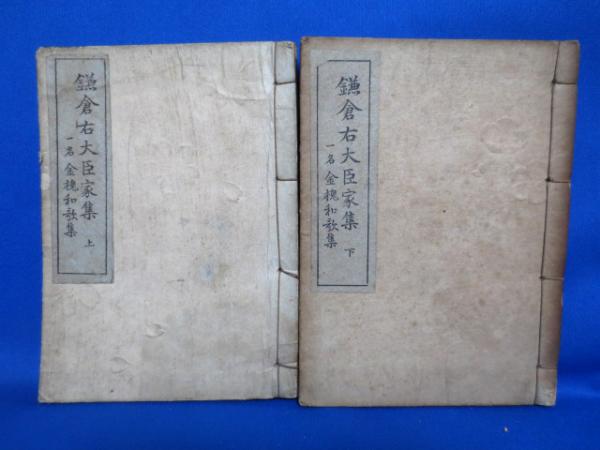 鎌倉右大臣家集
一名金槐和歌集 上
鎌倉右大臣家集
一名金槐和歌集 下